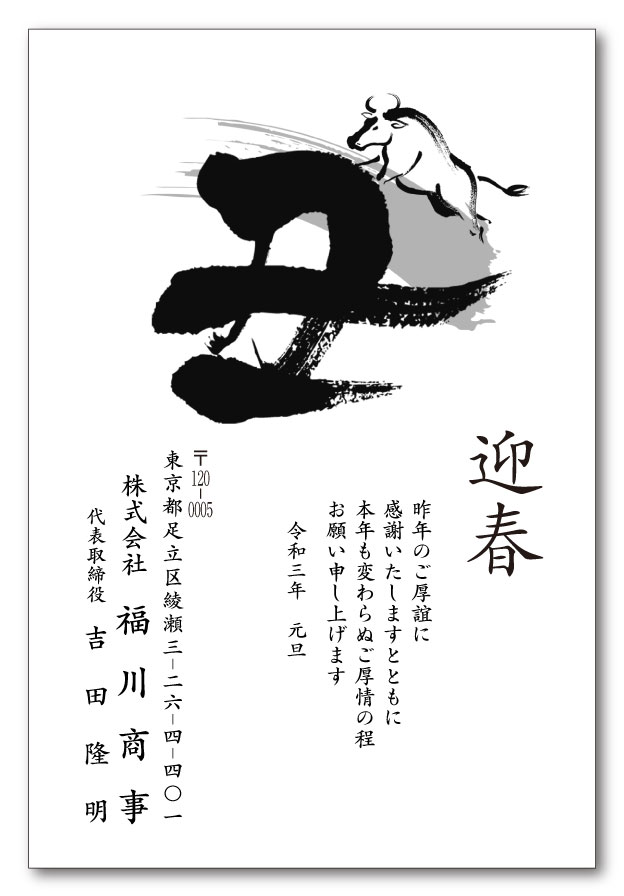 丑
迎春
昨年のご厚誼に
感謝いたしますとともに
本年も変わらぬご厚情の程
お願い申し上げます
令和三年　元旦
〒120-0005
東京都足立区綾瀬三-二六-四-四〇一
株式会社　福川商事
代表取締役　吉田隆明